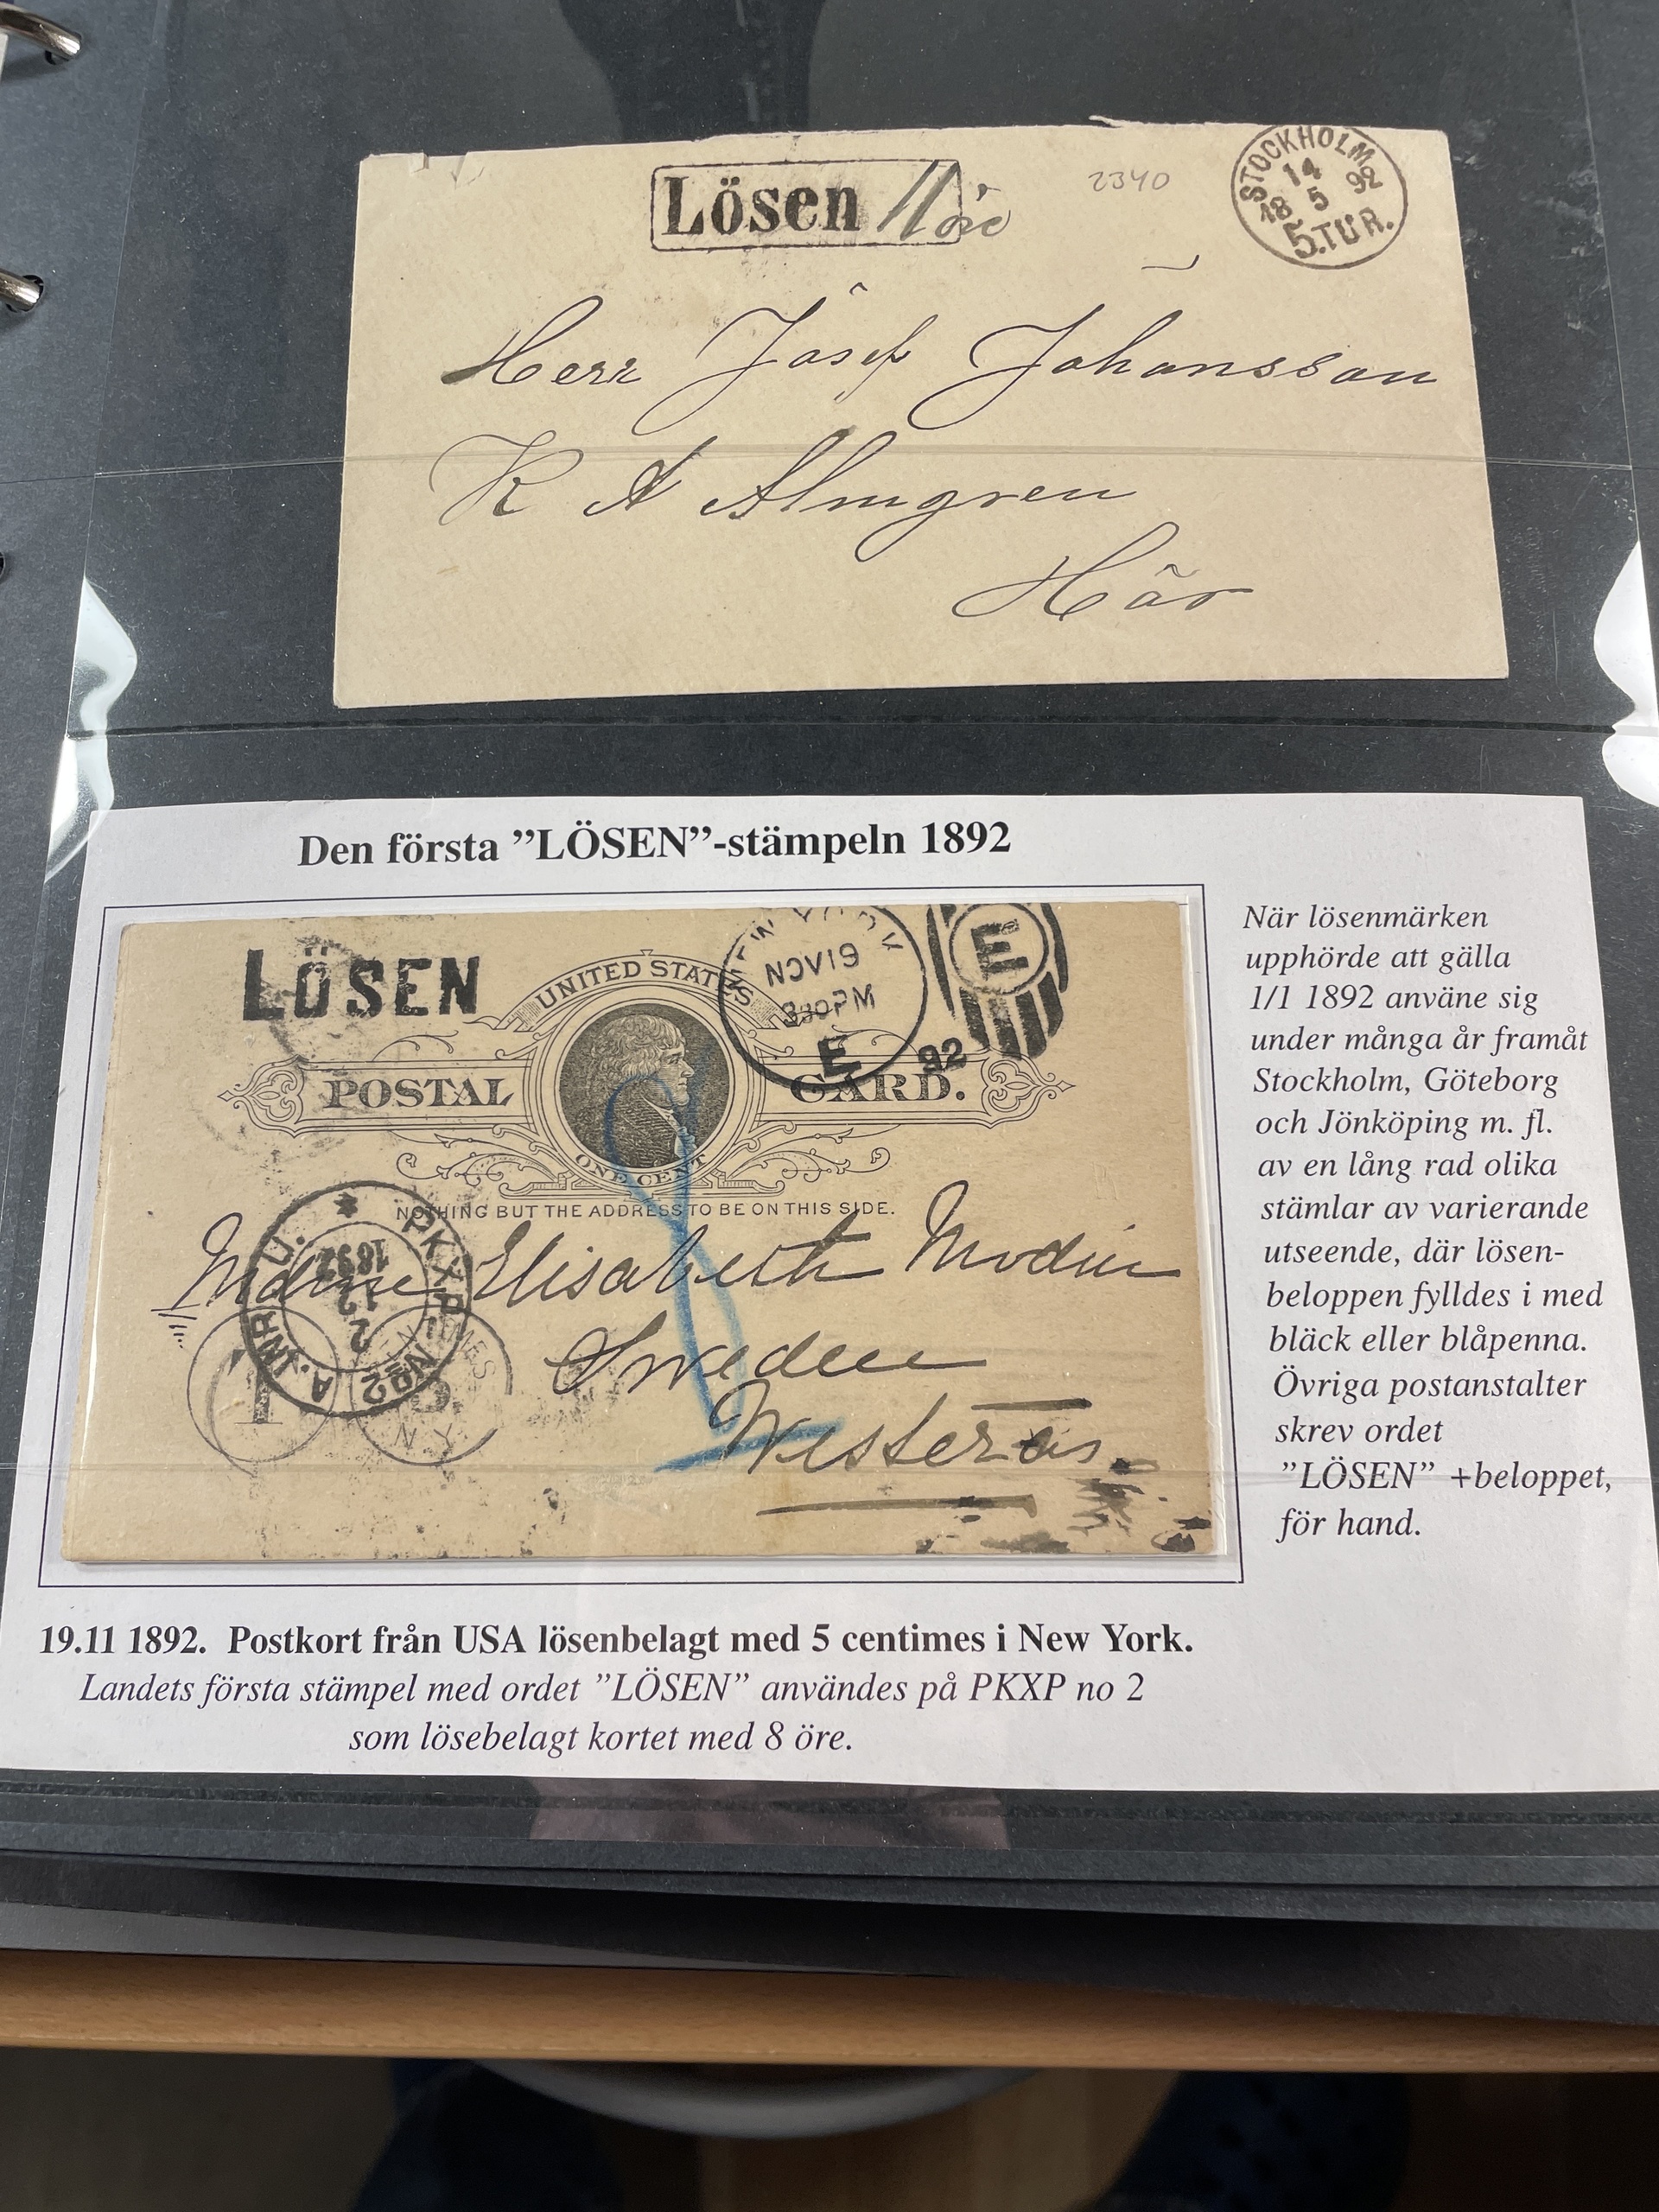 Lösen 11 öre
2340
STOCKHOLM
14
18 5 92
5.TUR.
Herr Josef Johansson
K A Almgren
Här
Den första ”LÖSEN”-stämpeln 1892
LÖSEN
UNITED STATES
POSTAL CARD.
ONE CENT
NOTHING BUT THE ADDRESS TO BE ON THIS SIDE.
NEW YORK
NOV 19
330PM
E
92
E
PKXP. No 2 A. INR. U.
2
12
1892
Elisabeth Modin
Sweden
Westerås.
T
N.Y.
När lösenmärken
upphörde att gälla
1/1 1892 använe sig
under många år framåt
Stockholm, Göteborg
och Jönköping m. fl.
av en lång rad olika
stämlar av varierande
utseende, där lösen-
beloppen fylldes i med
bläck eller blåpenna.
Övriga postanstalter
skrev ordet
”LÖSEN” +beloppet,
för hand.
19.11 1892. Postkort från USA lösenbelagt med 5 centimes i New York.
Landets första stämpel med ordet ”LÖSEN” användes på PKXP no 2
som lösebelagt kortet med 8 öre.